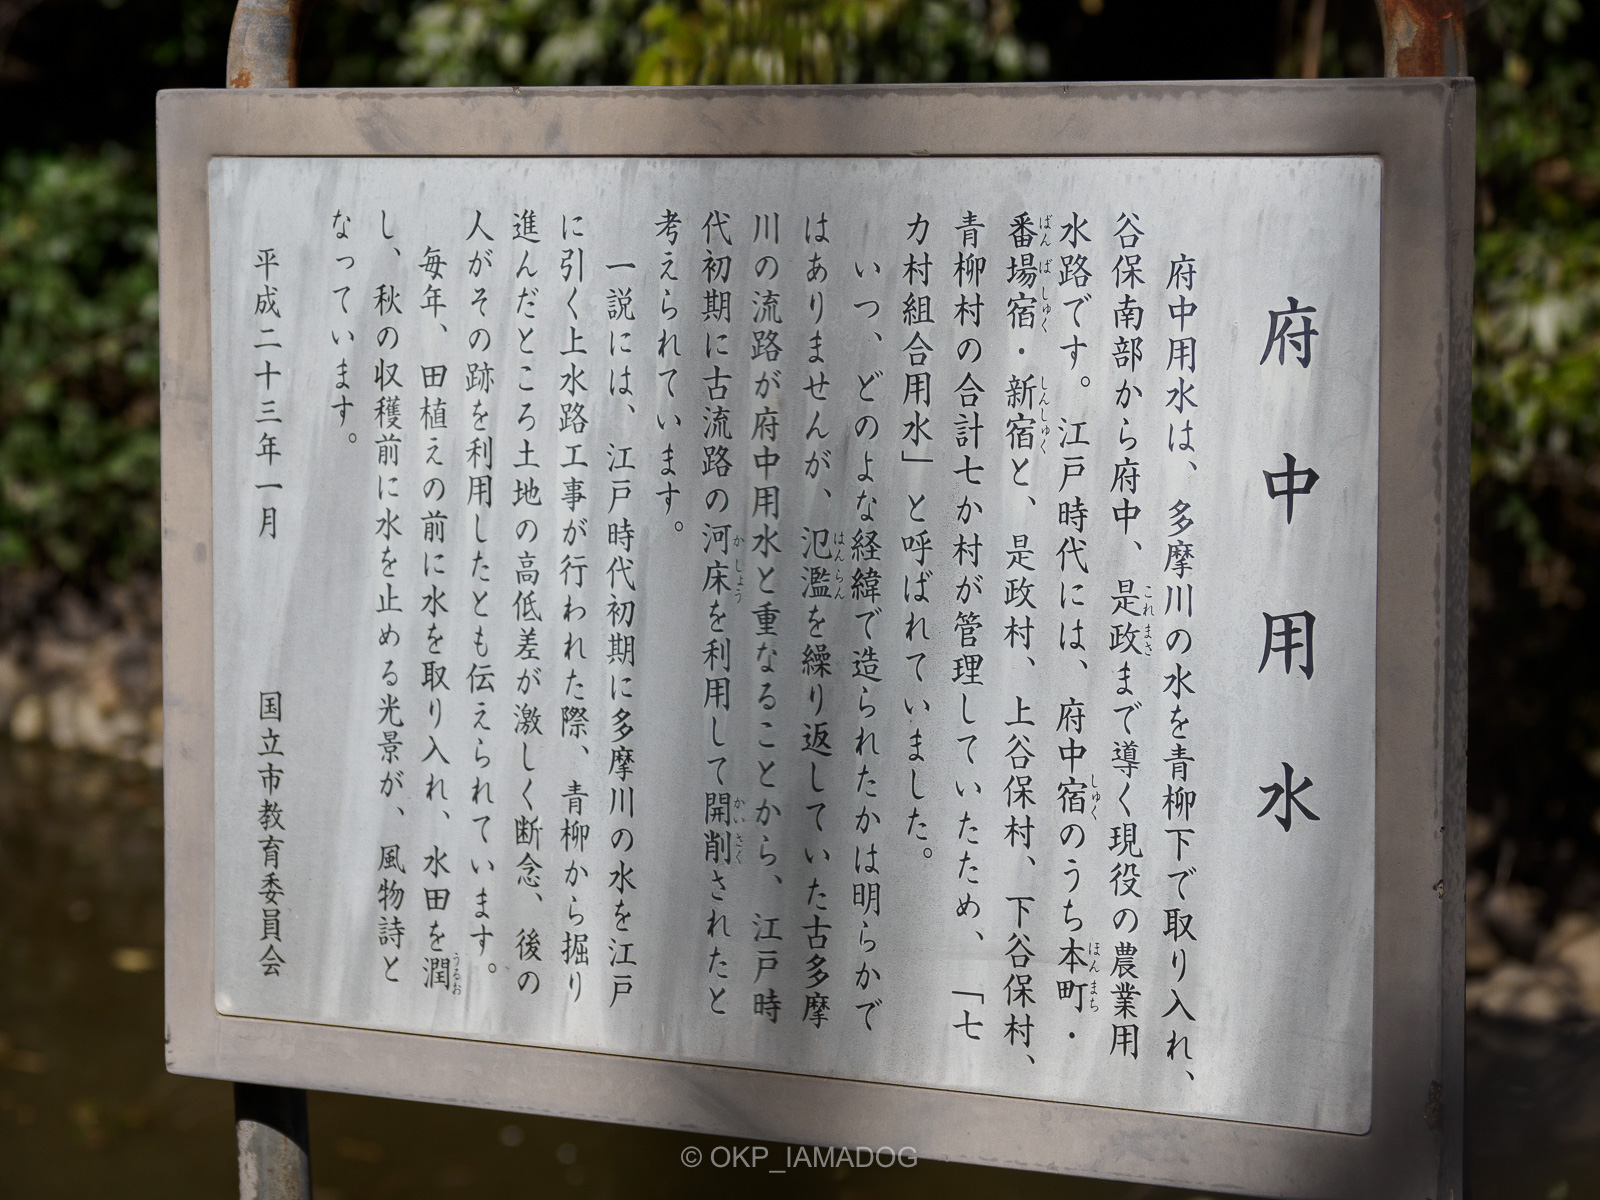 府中用水
府中用水は、多摩川の水を青柳下で取り入れ、
谷保南部から府中、是政まで導く現役の農業用
水路です。江戸時代には、府中宿のうち本町・
番場宿・新宿と、是政村、上谷保村、下谷保村、
青柳村の合計七か村が管理していたため、「七
カ村組合用水」と呼ばれていました。
いつ、どのよな経緯で造られたかは明らかで
はありませんが、氾濫を繰り返していた古多摩
川の流路が府中用水と重なることから、江戸時
代初期に古流路の河床を利用して開削されたと
考えられています。
一説には、江戸時代初期に多摩川の水を江戸
に引く上水路工事が行われた際、青柳から掘り
進んだところ土地の高低差が激しく断念、後の
人がその跡を利用したとも伝えられています。
毎年、田植えの前に水を取り入れ、水田を潤
し、秋の収穫前に水を止める光景が、風物詩と
なっています。
平成二十三年一月 国立市教育委員会
これまさ
しゅく
ほんまち
ばんばしゅく
しんしゅく
はんらん
かしょう
かいさく
うるお
© OKP_IAMADOG